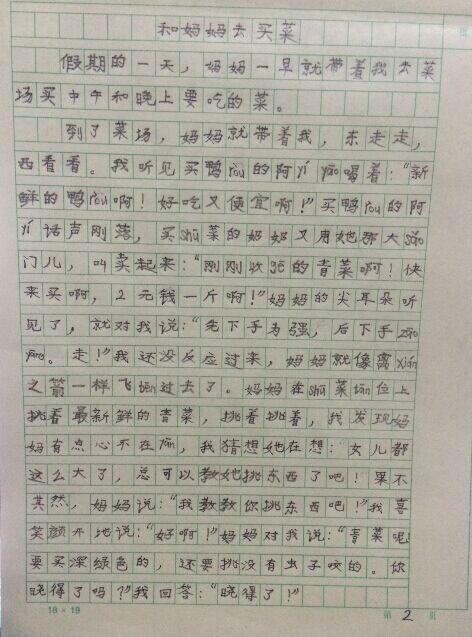 和妈妈去买菜
假期的一天，妈妈一早就带着我去菜
场买中午和晚上要吃的菜。
到了菜场，妈妈就带着我，东走走，
西看看。我听见买鸭ròu的阿yí yāo喝着：“新
鲜的鸭ròu啊！好吃又便宜啊！”买鸭ròu的阿
yí话声刚落，买shū菜的奶奶又用她那大sǎng
门儿，叫卖起来：“刚刚收割的青菜啊！快
来买啊，2元钱一斤啊！”妈妈的尖耳朵听
见了，就对我说：“先下手为强，后下手zāo
yāng。走！”我还没反应过来，妈妈就像离xián
之箭一样飞bēn过去了。妈妈在shū菜tān位上
挑着最新鲜的青菜，挑着挑着，我发现妈
妈有点心不在yān，我猜想她在想：女儿都
这么大了，总可以教她挑东西了吧！果不
其然，妈妈说：“我教教你挑东西吧！”我喜
笑颜开地说：“好啊！”妈妈对我说：“青菜呢
要买深绿色的，还要挑没有虫子咬的。你
晓得了吗？”我回答：“晓得了！”
18×19
第 2 页